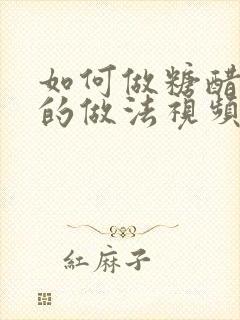 如何做糖醋
的做法視頻
紅麻子